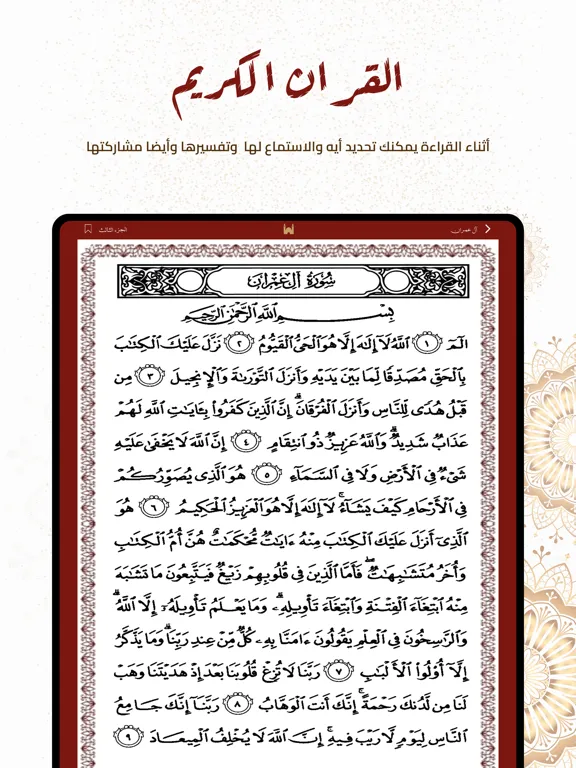 القران الكريم
أثناء القراءة يمكنك تحديد أيه والاستماع لها وتفسيرها وأيضا مشاركتها
آل عمران الجزء الثالث
سُورَةُ آلِ عِمْرَان
بِسْمِ اللَّهِ الرَّحْمَٰنِ الرَّحِيمِ
الٓمٓ ١ اللَّهُ لَآ إِلَٰهَ إِلَّا هُوَ الْحَيُّ الْقَيُّومُ ٢ نَزَّلَ عَلَيْكَ الْكِتَٰبَ
بِالْحَقِّ مُصَدِّقًا لِّمَا بَيْنَ يَدَيْهِ وَأَنزَلَ التَّوْرَىٰةَ وَالْإِنجِيلَ ٣ مِن
قَبْلُ هُدًى لِّلنَّاسِ وَأَنزَلَ الْفُرْقَانَ ۗ إِنَّ الَّذِينَ كَفَرُوا بِـَٔايَٰتِ اللَّهِ لَهُمْ
عَذَابٌ شَدِيدٌ ۗ وَاللَّهُ عَزِيزٌ ذُو انتِقَامٍ ٤ إِنَّ اللَّهَ لَا يَخْفَىٰ عَلَيْهِ
شَىْءٌ فِي الْأَرْضِ وَلَا فِي السَّمَآءِ ٥ هُوَ الَّذِي يُصَوِّرُكُمْ
فِي الْأَرْحَامِ كَيْفَ يَشَآءُ ۚ لَآ إِلَٰهَ إِلَّا هُوَ الْعَزِيزُ الْحَكِيمُ ٦ هُوَ
الَّذِيٓ أَنزَلَ عَلَيْكَ الْكِتَٰبَ مِنْهُ ءَايَٰتٌ مُّحْكَمَٰتٌ هُنَّ أُمُّ الْكِتَٰبِ
وَأُخَرُ مُتَشَٰبِهَٰتٌ ۖ فَأَمَّا الَّذِينَ فِي قُلُوبِهِمْ زَيْغٌ فَيَتَّبِعُونَ مَا تَشَٰبَهَ
مِنْهُ ابْتِغَآءَ الْفِتْنَةِ وَابْتِغَآءَ تَأْوِيلِهِ ۗ وَمَا يَعْلَمُ تَأْوِيلَهُ إِلَّا اللَّهُ ۗ
وَالرَّٰسِخُونَ فِي الْعِلْمِ يَقُولُونَ ءَامَنَّا بِهِ كُلٌّ مِّنْ عِندِ رَبِّنَا ۗ وَمَا يَذَّكَّرُ
إِلَّآ أُولُوا الْأَلْبَٰبِ ٧ رَبَّنَا لَا تُزِغْ قُلُوبَنَا بَعْدَ إِذْ هَدَيْتَنَا وَهَبْ
لَنَا مِن لَّدُنكَ رَحْمَةً ۚ إِنَّكَ أَنتَ الْوَهَّابُ ٨ رَبَّنَآ إِنَّكَ جَامِعُ
النَّاسِ لِيَوْمٍ لَّا رَيْبَ فِيهِ ۚ إِنَّ اللَّهَ لَا يُخْلِفُ الْمِيعَادَ ٩